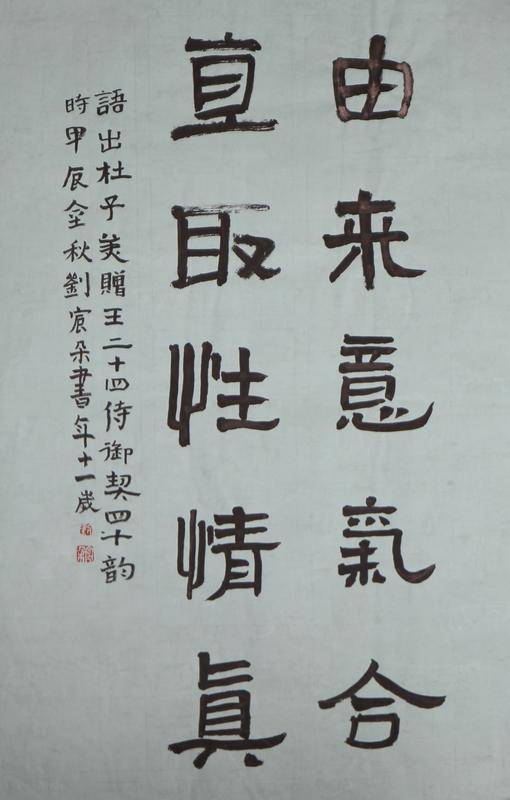 由来意氣合
直取性情真
語出杜子美贈王二十四侍御契四十韵
時甲辰金秋劉宸朵書年十一歲